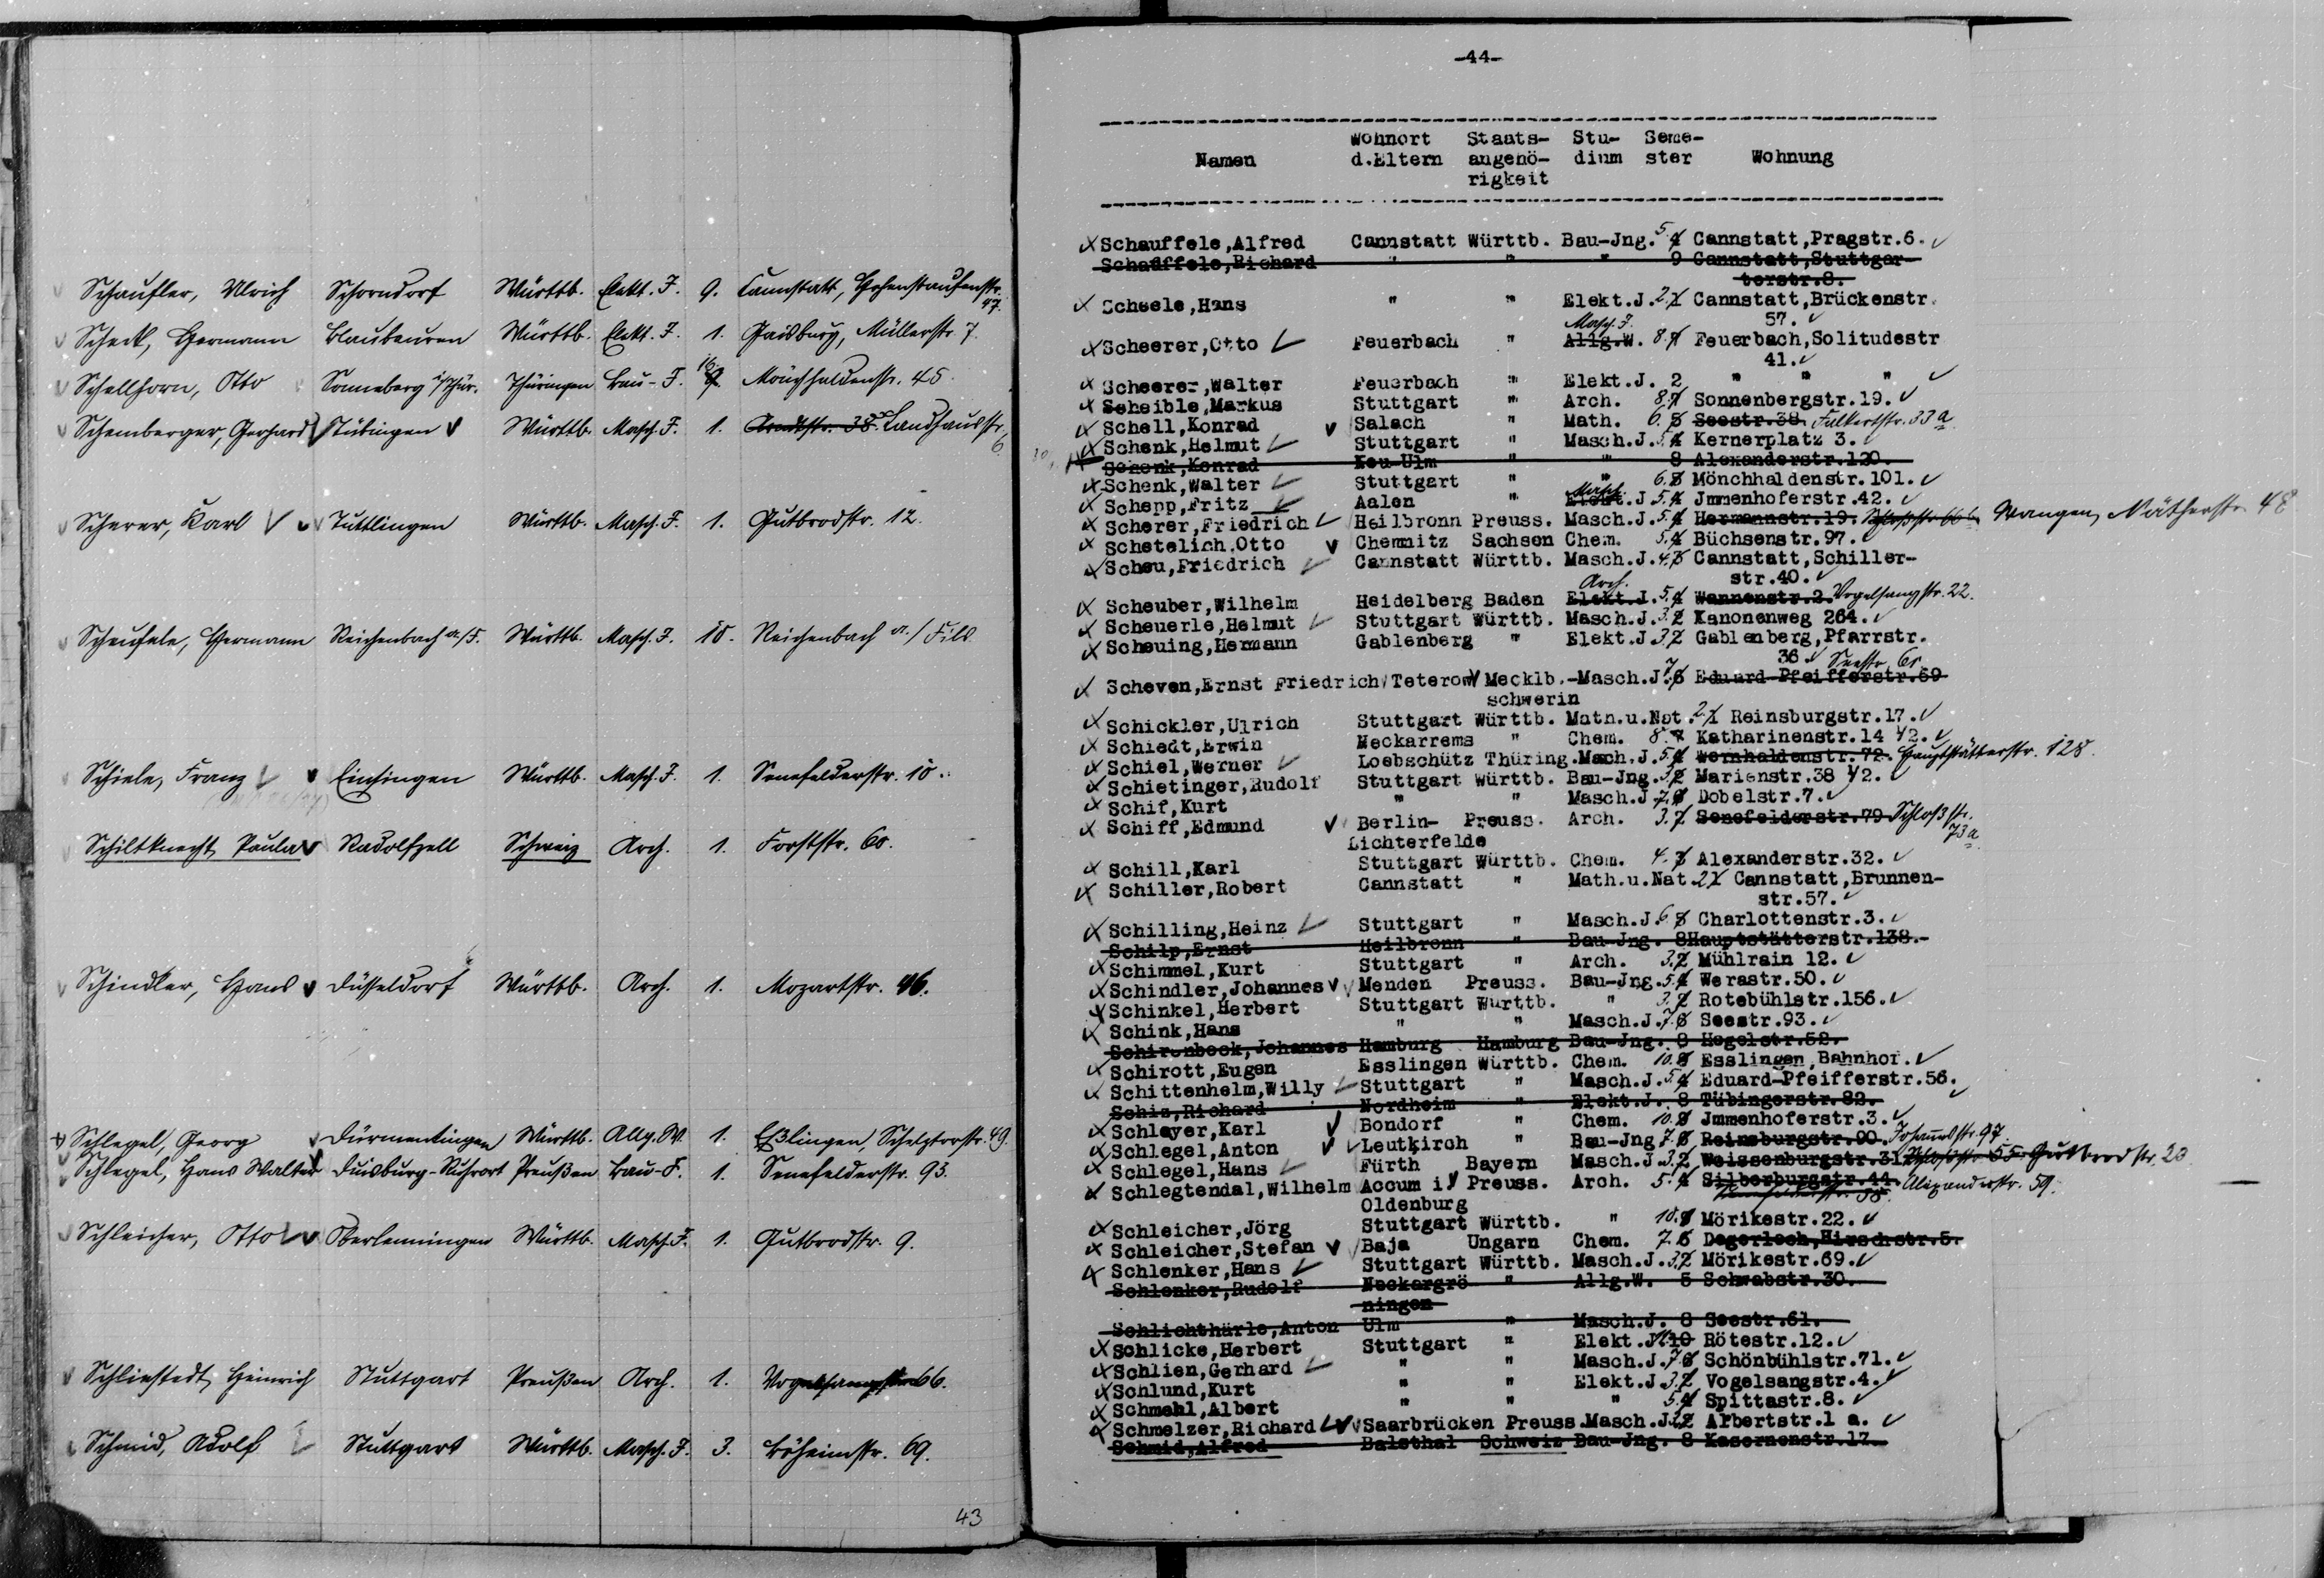 Schaufler, Ulrich Schorndorf Württb. Elekt. J. 9. Cannstatt, Hohenstaufenstr.
47.
Scheck, Hermann Blaubeuren Württb. Elekt. J. 1. Gaisburg, Müllerstr. 7.
Schellhorn, Otto Sonneberg i/Thür. Thüringen Bau-J. Mönchhaldenstr. 45.
Schemberger, Gerhard Tübingen Württb. Masch. J. 1. Arndtstr. 38. Landhausstr.
6
Scherer, Karl Tuttlingen Württb. Masch. J. 1. Gutbrodstr. 12.
Scheufele, Hermann Reichenbach a./F. Württb. Masch. J. 10. Reichenbach a./Fils
Schiele, Franz Einsingen Württb. Masch. J. 1. Senefelderstr. 10.
Schiltknecht, Paula Radolfzell Schweiz Arch. 1. Forststr. 60.
Schindler, Hans Düsseldorf Württb. Arch. 1. Mozartstr. 46.
Schlegel, Georg Dürmentingen Württb. Allg. W. 1. Eßlingen, 49.
Schlegel, Hans Walter Duisburg-Ruhrort Preußen Bau-J. 1. Senefelderstr. 93.
Schleicher, Otto Oberlenningen Württb. Masch. J. 1. Gutbrodstr. 9.
Schliestedt, Heinrich Stuttgart Preußen Arch. 1. Vogelsangstr. 66.
Schmid, Adolf Stuttgart Württb. Masch. J. 3. Böheimstr. 69.
43
-44-
Namen Wohnort d.Eltern Staats-angehö-rigkeit Stu-dium Seme-ster Wohnung
Schauffele,Alfred Cannstatt Württb. Bau-Jng. 5. 4 Cannstatt,Pragstr.6.
Schauffele,Richard " " " 9 Cannstatt,Stuttgar-
terstr.8.
Scheele,Hans " " Elekt.J. 2. 1 Cannstatt,Brückenstr.
57.
Masch. J.
Scheerer,Otto Feuerbach " Allg.W. 8. 7 Feuerbach,Solitudestr
41.
Scheerer,Walter Feuerbach " Elekt.J. 2 " " "
Scheible,Markus Stuttgart " Arch. 8. 7 Sonnenbergstr.19.
Schell,Konrad Salach " Math. 6. 5 Seestr.38. Falkertstr. 33a
Schenk,Helmut Stuttgart " Masch.J. 5. 4 Kernerplatz 3.
Schenk,Konrad Neu-Ulm " " 8 Alexanderstr.120.
Schenk,Walter Stuttgart " " 6. 5 Mönchhaldenstr.101.
Schepp,Fritz Aalen " Masch. Elekt.J 5. 4 Jmmenhoferstr.42.
Scherer,Friedrich Heilbronn Preuss. Masch.J. 5. 4 Hermannstr.19. Schloßstr. 66 Wangen, Nätherstr. 48
Schetelich.Otto Chemnitz Sachsen Chem. 5. 4 Büchsenstr.97.
Scheu,Friedrich Cannstatt Württb. Masch.J. 4. 3 Cannstatt,Schiller-
str.40.
Arch.
Scheuber,Wilhelm Heidelberg Baden Elekt.J. 5. 4 Wannenstr.2. Vogelsangstr. 22.
Scheuerle,Helmut Stuttgart Württb. Masch.J. 3. 2 Kanonenweg 264.
Scheuing,Hermann Gablenberg " Elekt.J 3. 2 Gablenberg,Pfarrstr.
36 Seestr. 60.
Scheven,Ernst Friedrich Teterow Mecklb.-Masch.J 7. 6 Eduard-Pfeifferstr.69
schwerin
Schickler,Ulrich Stuttgart Württb. Math.u.Nat. 2. 1 Reinsburgstr.17.
Schiedt,Erwin Neckarrems " Chem. 8. 7 Katharinenstr.14 1/2.
Schiel,Werner Loebschütz Thüring.Masch.J. 5. 4 Wernhaldenstr.72. Hauptstätterstr. 128.
Schietinger,Rudolf Stuttgart Württb. Bau-Jng. 3. 2 Marienstr.38 1/2.
Schif,Kurt " " Masch.J 7. 6 Dobelstr.7.
Schiff,Edmund Berlin- Preuss. Arch. 3. 2 Senefelderstr.79 Schloßstr.
Lichterfelde 73a.
Schill,Karl Stuttgart Württb. Chem. 4. 3 Alexanderstr.32.
Schiller,Robert Cannstatt " Math.u.Nat. 2 1 Cannstatt,Brunnen-
str.57.
Schilling,Heinz Stuttgart " Masch.J. 6 5 Charlottenstr.3.
Schilp,Ernst Heilbronn " Bau-Jng. 8Hauptstätterstr.138.-
Schimmel,Kurt Stuttgart " Arch. 3. 2 Mühlrain 12.
Schindler,Johannes Menden Preuss. Bau-Jng. 5. 4 Werastr.50.
Schinkel,Herbert Stuttgart Württb. " 3. 2 Rotebühlstr.156.
Schink,Hans " " Masch.J. 7. 6 Seestr.93.
Schirenbeck,Johannes Hamburg Hamburg Bau-Jng. 8 Hegelstr.52.
Schirott,Eugen Esslingen Württb. Chem. 10. Esslingen,Bahnhof.
Schittenhelm,Willy Stuttgart " Masch.J. 5. 4 Eduard-Pfeifferstr.56.
Schiz,Richard Nordheim " Elekt.J. 8 Tübingerstr.82.
Schlayer,Karl Bondorf " Chem. 10. Jmmenhoferstr.3.
Schlegel,Anton Leutkirch " Bau-Jng 7. 6 Reinsburgstr.90. Johannesstr. 97
Schlegel,Hans Fürth Bayern Masch.J. 3. 2 Weissenburgstr.31. Schloßstr. 55. Gutbrodstr. 20.
Schlegtendal,Wilhelm Accum i/ Preuss. Arch. 5. 4 Silberburgstr.44. Alexanderstr. 59.
Oldenburg
Schleicher,Jörg Stuttgart Württb. " 10. Mörikestr.22.
Schleicher,Stefan Baja Ungarn Chem. 7. 6 Degerloch,Hirschstr.5.
Schlenker,Hans Stuttgart Württb. Masch.J. 3. 2 Mörikestr.69.
Schlenker,Rudolf Neckargrö " Allg.W. 5 Schwabstr.30.
ningen
Schlichthärle,Anton Ulm " Masch.J. 8 Seestr.61.
Schlicke,Herbert Stuttgart " Elekt.J 10 Rötestr.12.
Schlien,Gerhard " " Masch.J. 7. 6 Schönbühlstr.71.
Schlund,Kurt " " Elekt.J. 3. 2 Vogelsangstr.4.
Schmehl,Albert " " " 5. 4 Spittastr.8.
Schmelzer,Richard Saarbrücken Preuss.Masch.J 3. 2 Albertstr.1 a.
Schmid,Alfred Balsthal Schweiz Bau-Jng. 8 Kasernenstr.17.